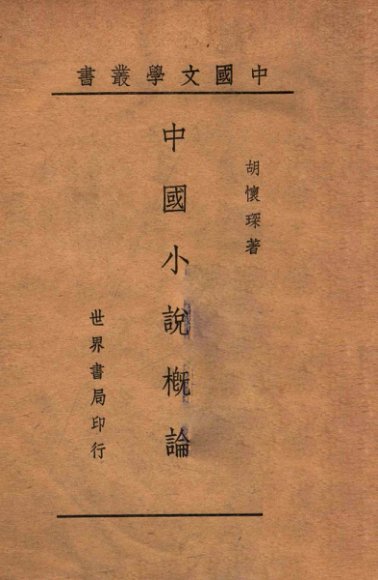 中國文學叢書
胡懷琛著
中國小說概論
世界書局印行